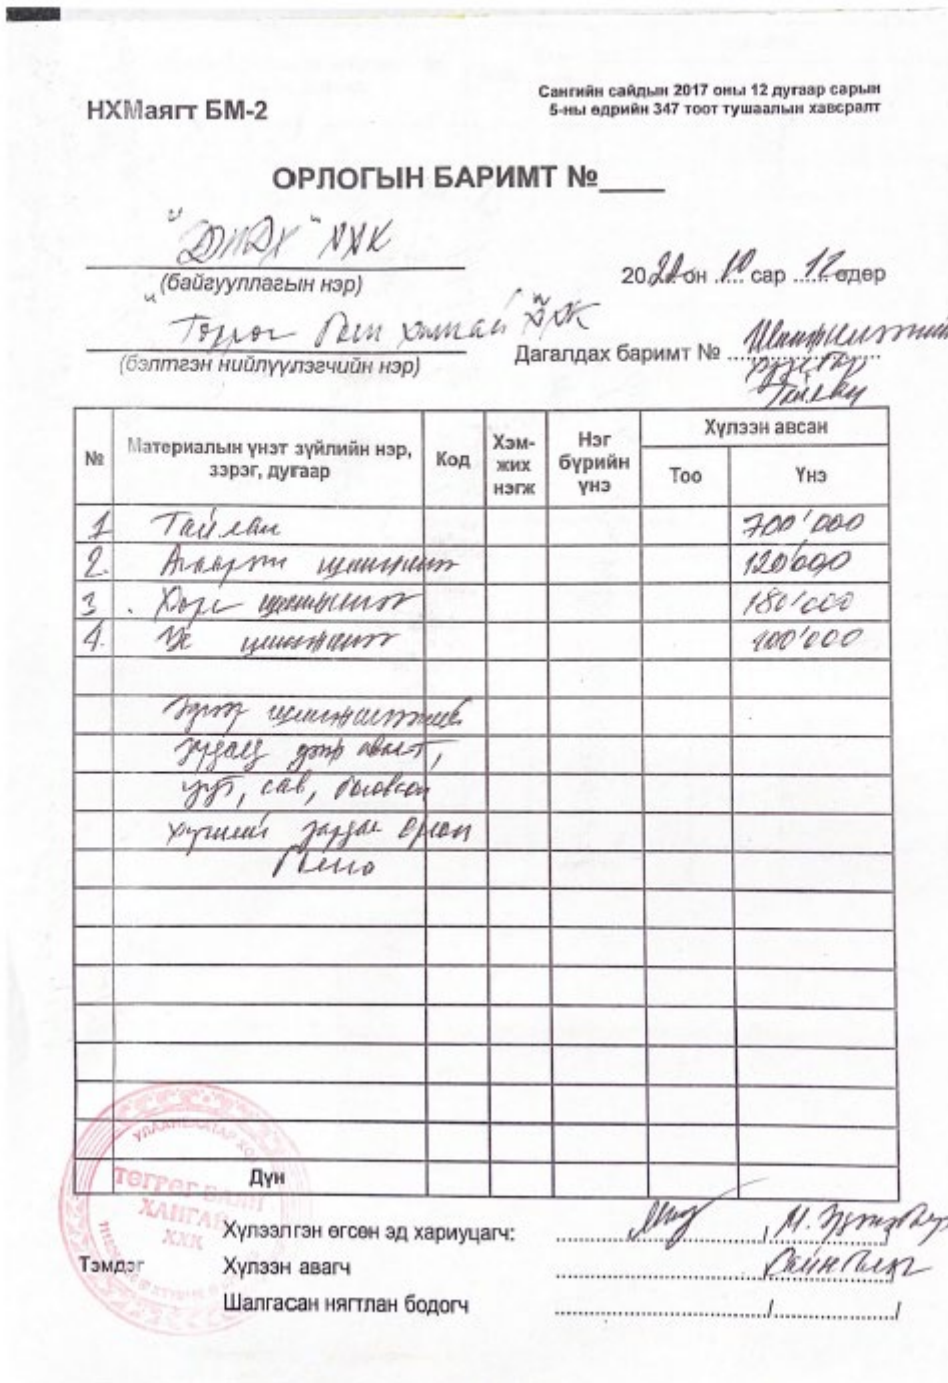 НХМаягт БМ-2
Сангийн сайдын 2017 оны 12 дугаар сарын
5-ны өдрийн 347 тоот тушаалын хавсралт
ОРЛОГЫН БАРИМТ №____
ХХК
(байгууллагын нэр)
2020 он 10 сар 12 өдөр
Төгрөг баян хангай ХХК
(бэлтгэн нийлүүлэгчийн нэр)
Дагалдах баримт № Шинжилгээний
Тайлан
№
Материалын үнэт зүйлийн нэр, зэрэг, дугаар
Код
Хэм-жих нэгж
Нэг бүрийн үнэ
Хүлээн авсан
Тоо
Үнэ
1 Тайлан 700'000
2. Агаарын шинжилгээ 120'000
3. Хөрс шинжилгээ 180'000
4. Ус шинжилгээ
Эдгээр шинжилгээний
зардалд дээж авалт,
уут, сав, боловсон
хүчний зардал орсон
болно
Дүн
УЛААНБААТАР ХО
ТӨГРӨГ БАЯН
ХАНГАЙ
ХХК
Хүлээлгэн өгсөн эд хариуцагч:
Тэмдэг
Хүлээн авагч
Шалгасан нягтлан бодогч